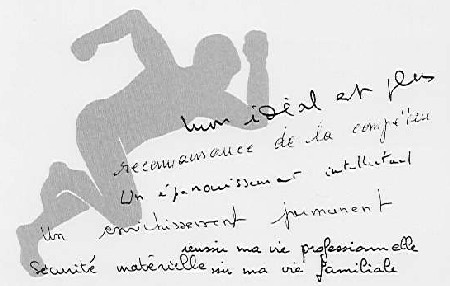 mon idéal est plus
reconnaissance de la compéten
Un épanouissement intellectuel
Un enrichissement permanent
réussir ma vie professionnelle
Sécurité matérielle ma vie familiale